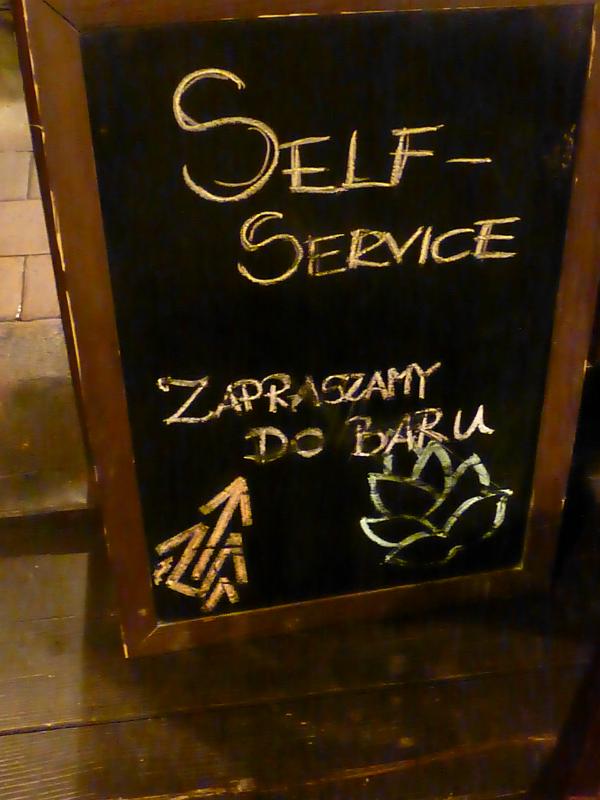 SELF-
SERVICE
ZAPRASZAMY
DO BARU